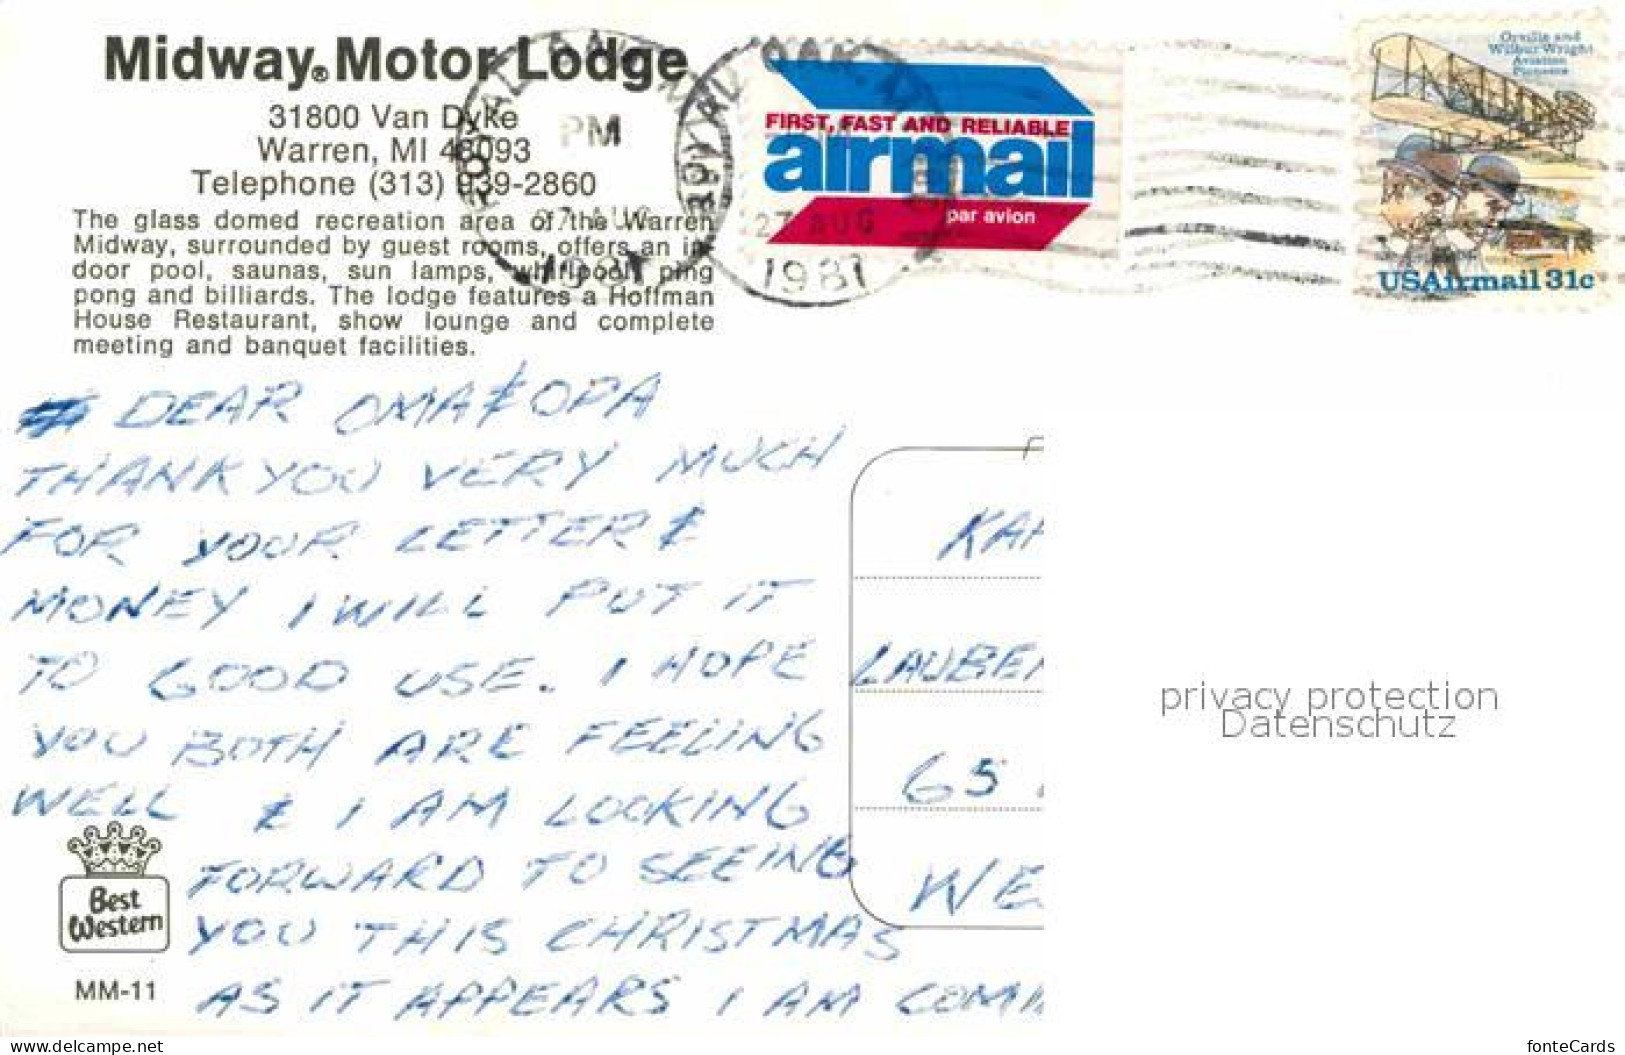 Midway® Motor Lodge
31800 Van Dyke
Warren, MI 48093
Telephone (313) 939-2860
The glass domed recreation area of the Warren
Midway, surrounded by guest rooms, offers an in-
door pool, saunas, sun lamps, whirlpool, ping
pong and billiards. The lodge features a Hoffman
House Restaurant, show lounge and complete
meeting and banquet facilities.
PM
27 AUG
1981
27 AUG
1981
FIRST, FAST AND RELIABLE
airmail
par avion
Orville and
Wilbur Wright
Aviation
Pioneers
USAirmail 31c
DEAR OMA & OPA
THANK YOU VERY MUCH
FOR YOUR LETTER &
MONEY I WILL PUT IT
TO GOOD USE. I HOPE
YOU BOTH ARE FEELING
WELL & I AM LOOKING
FORWARD TO SEEING
YOU THIS CHRISTMAS
AS IT APPEARS I AM COMI
LAUBE
65
WE
Best
Western
MM-11
privacy protection
Datenschutz
www.delcampe.net
fonteCards